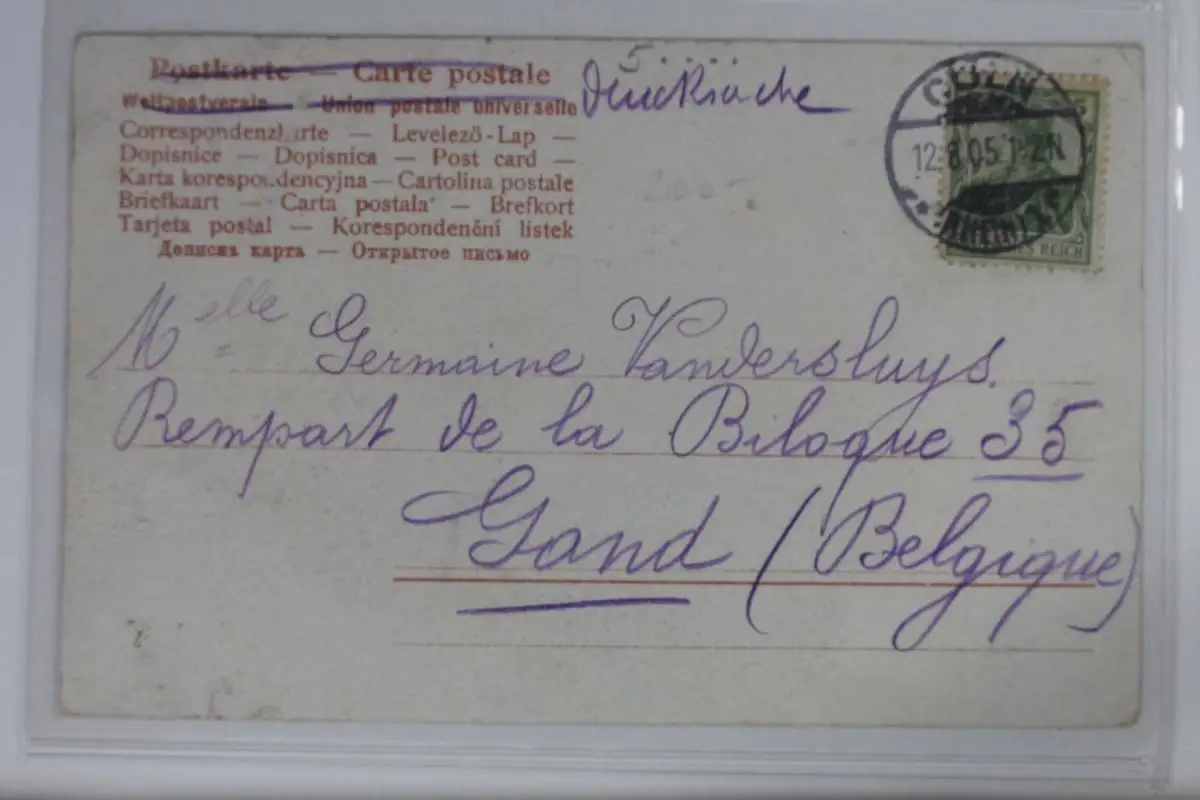 Postkarte — Carte postale
Weltpostverein — Union postale universelle
Drucksache
Correspondenzkarte — Levelező-Lap —
Dopisnice — Dopisnica — Post card —
Karta korespondencyjna — Cartolina postale
Briefkaart — Carta postala — Brefkort
Tarjeta postal — Korespondenční listek
Дописна карта — Открытое письмо
CÖLN
12.8.05.1-2N
(RHEIN)
REICH
Melle Germaine Vandersluys.
Rempart de la Biloque 35
Gand (Belgique)